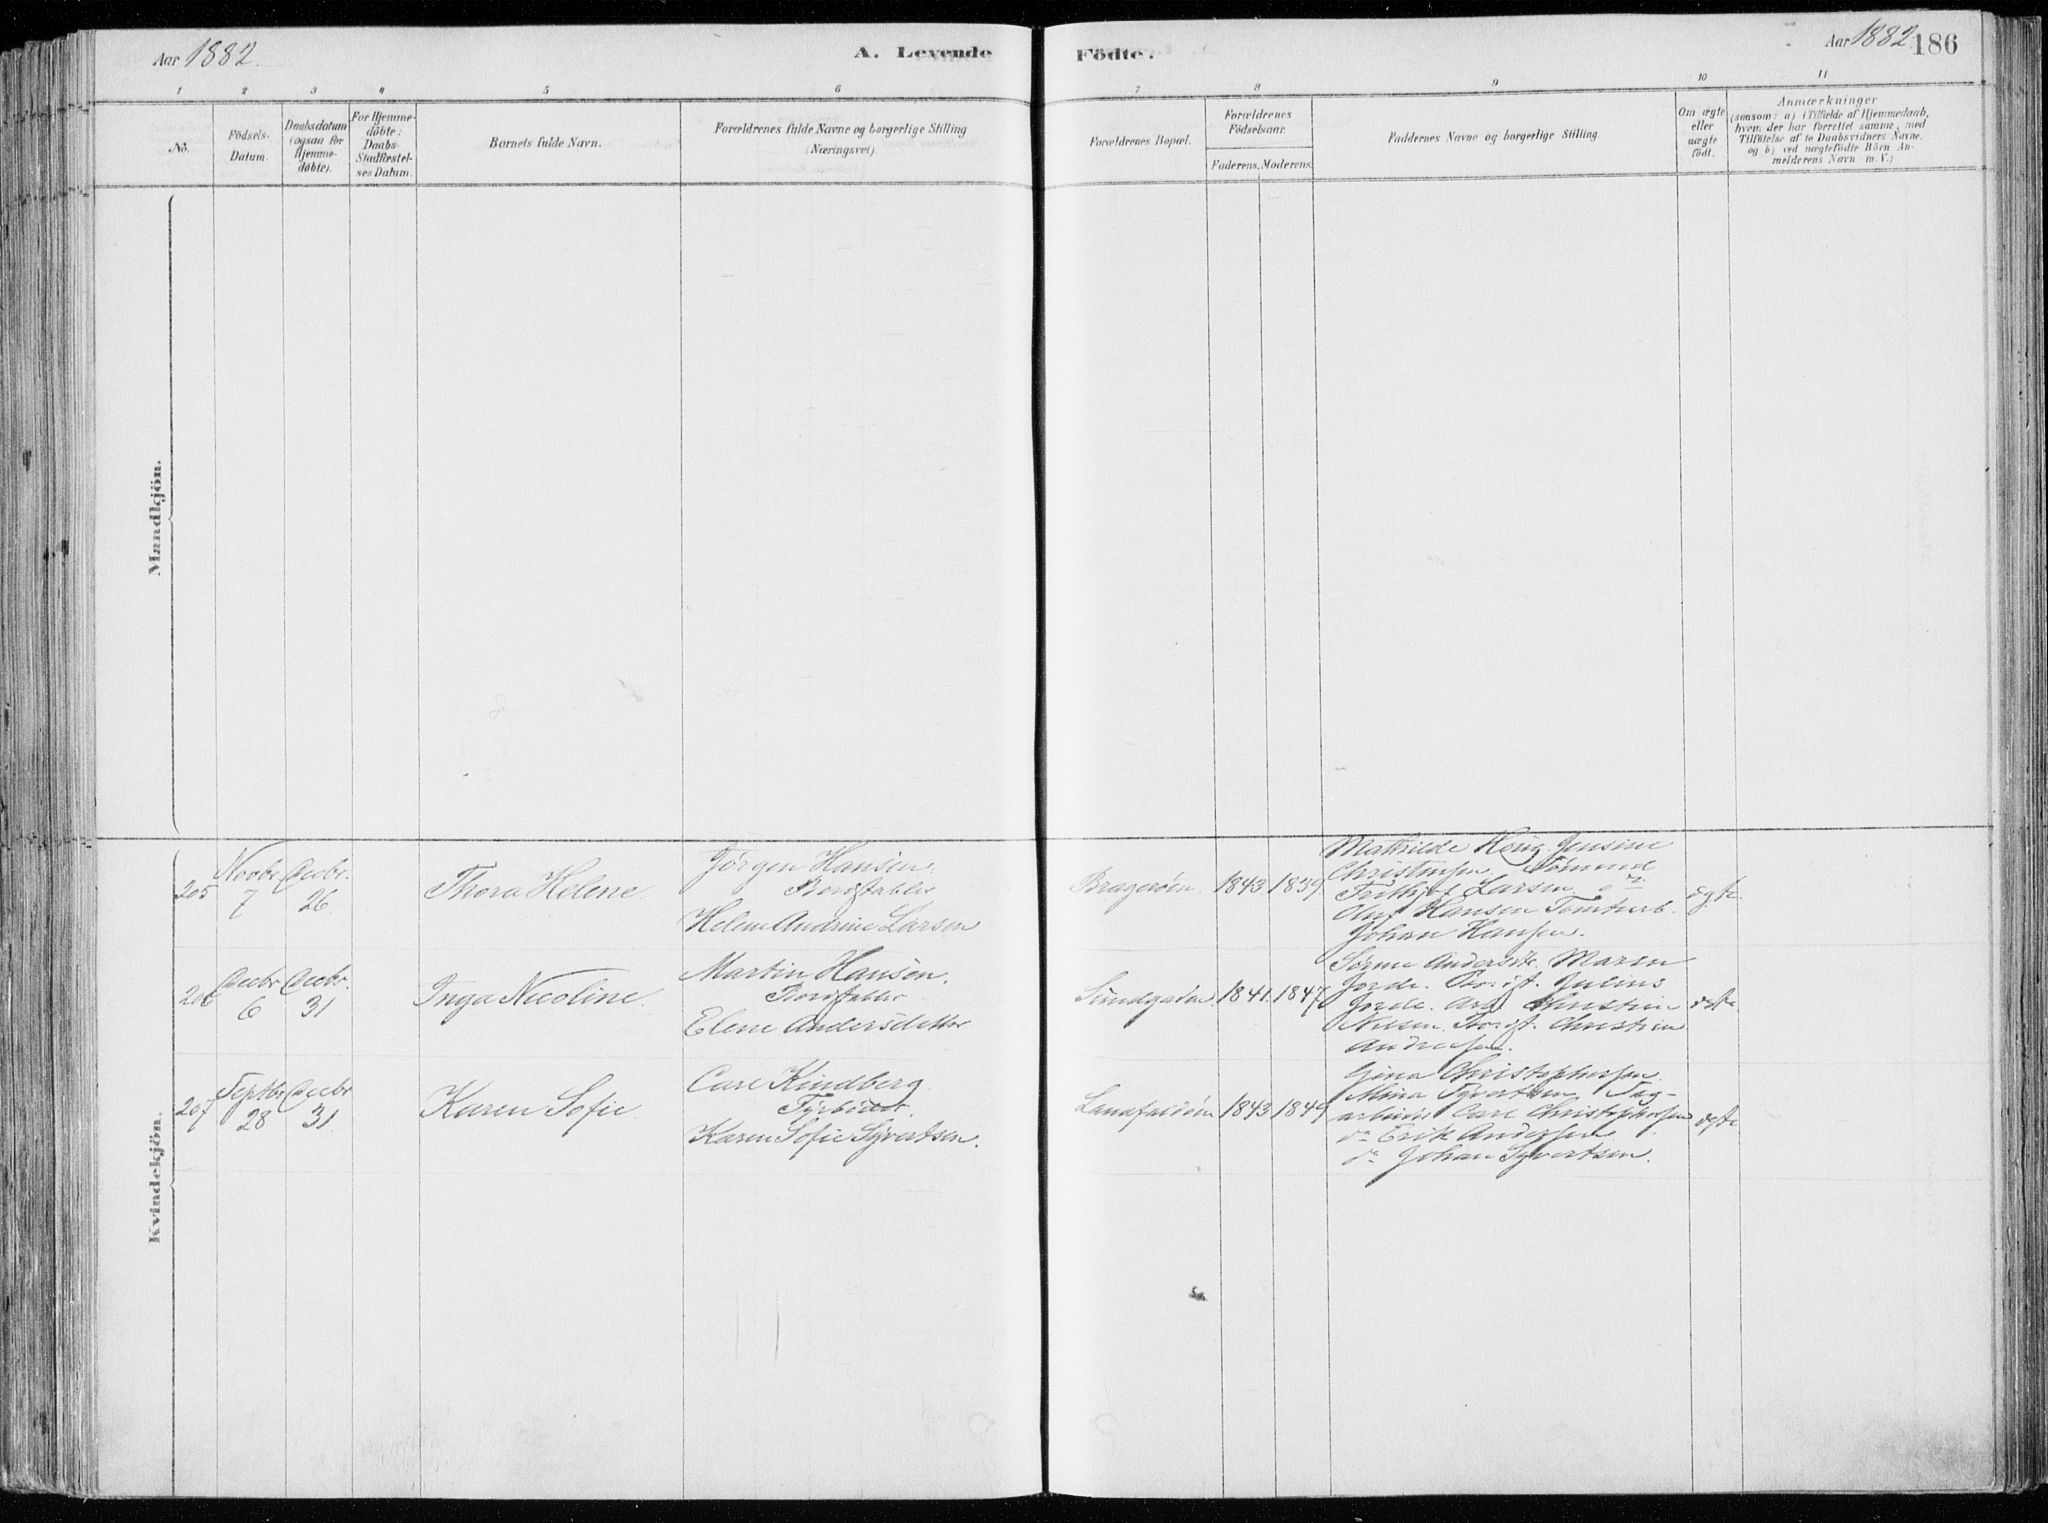 Aar 1882.
A. Levende
Födte.
Aar 1882
186
1 2 3 4 5 6 7 8 9 10 11
No.
Födsels-
Datum.
Daabsdatum
(ogsaa for
Hjemme-
döbte).
For Hjemme-
döbte:
Daabs-
Stadfæstel-
ses Datum.
Barnets fulde Navn.
Forældrenes fulde Navne og borgerlige Stilling
(Næringsvei).
Forældrenes Bopæl.
Forældrenes
Födselsaar.
Faderens. Moderens.
Faddernes Navne og borgerlige Stilling.
Om ægte
eller
uægte
födt.
Anmærkninger
(saasom: a) i Tilfælde af Hjemmedaab,
hvem der har forrettet samme, med
Tilföielse af to Daabsvidners Navne.
og b) ved uægtefödte Börn An-
melderens Navn m. V.)
Mandkjön.
Kvindekjön.
205
Novbr
7
Decbr.
26
Thora Helene.
Jørgen Hansen.
Helene Andrine Larsen
Bragerøen
1843
1839
Mathilde König. Jensine
Christensen
Frithjof Larsen
Oluf Hansen Tomtearb.
Johan Hansen.
ægte.
206
Decbr
6
Decbr.
31
Inga Nicoline.
Martin Hansen.
Elene Andersdatter
Strandgaden
1841.
1847
Maren
Jorde. Julius
Jorde. Arb. Christian
Nilsen. Christian
Andersen.
ægte
207
Septbr
28
Decbr
31
Karen Sofie
Carl Kindberg
Fyrbøder.
Karen Sofie Syvertsen.
Landfaldøen
1843
1849
Gina Christophersen.
Mina Syvertsen Dag-
arbeider Carl Christophersen
do Erik Andersen
do Johan Syvertsen.
ægte